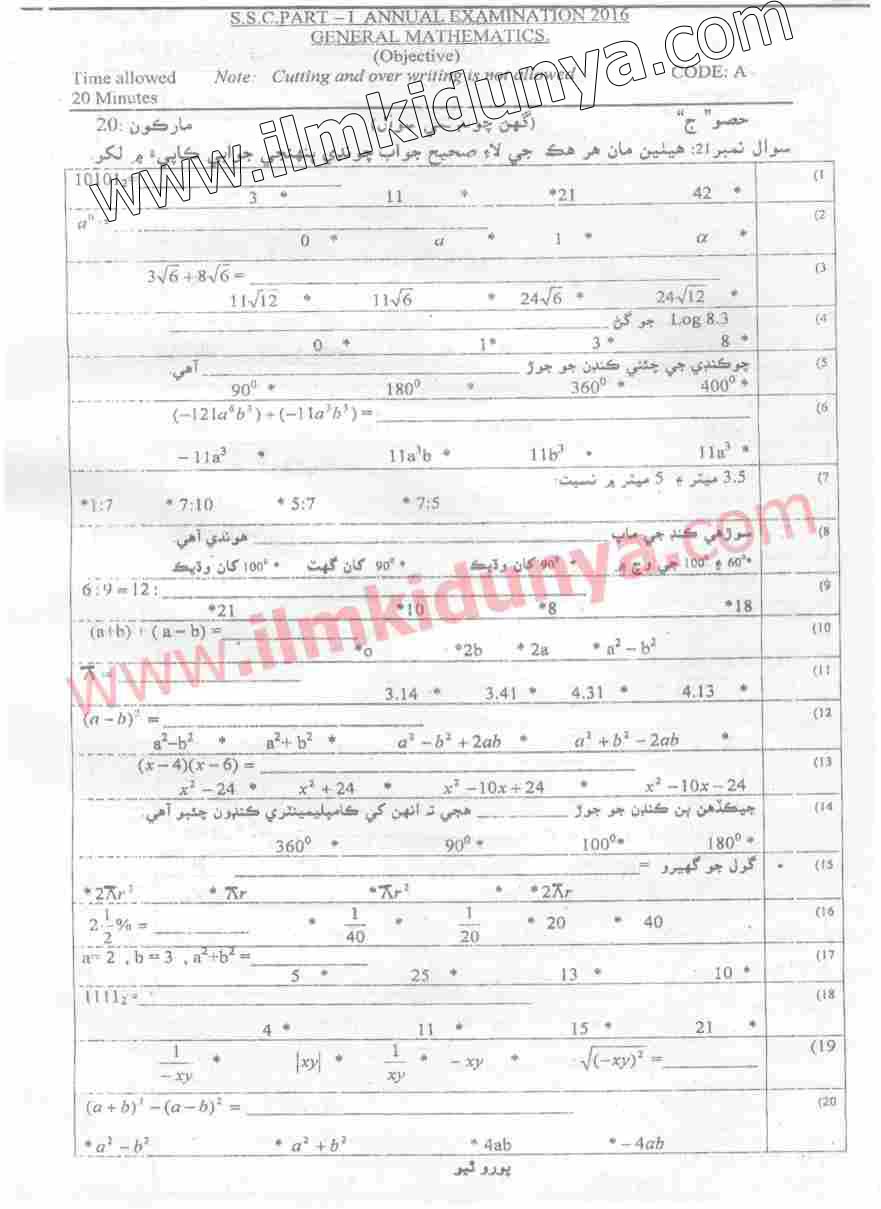 S.S.C.PART – I ANNUAL EXAMINATION 2016
GENERAL MATHEMATICS.
(Objective)
Time allowed Note: Cutting and over writing is not allowed CODE: A
20 Minutes
حصو "ج" مارڪون :20
سوال نمبر 21: هيٺين مان هر هڪ جي لاءِ صحيح جواب چونڊي پنهنجي جوابي ڪاپيءَ ۾ لکو.
www.ilmkidunya.com
(1 10101₂=
3 * 11 * *21 42 *
(2 a⁰
0 * a * 1 * α *
(3 3√6 + 8√6 =
11√12 * 11√6 * 24√6 * 24√12 *
(4 Log 8.3 جو گڻ
0 * 1* 3 * 8 *
(5 چوڪنڊي جي چئني ڪنڊن جو جوڙ ________ آهي.
90⁰ * 180⁰ * 360⁰ * 400⁰ *
(6 (−121a⁶b³) ÷ (−11a³b³) =
− 11a³ * 11a³b * 11b³ * 11a³ *
(7 3.5 ميٽر ۽ 5 ميٽر ۾ نسبت:
*1:7 * 7:10 * 5:7 * 7:5
(8 سوڙهي ڪنڊ جي ماپ ________ هوندي آهي.
*60⁰ ۽ 100⁰ جي وچ ۾ * 90⁰ کان وڌيڪ * 90⁰ کان گهٽ * 100⁰ کان وڌيڪ
www.ilmkidunya.com
(9 6 : 9 = 12 :
*21 *10 *8 *18
(10 (a+b) + ( a – b) =
*o *2b * 2a * a² – b²
(11 π =
3.14 * 3.41 * 4.31 * 4.13 *
(12 (a − b)² =
a²–b² * a²+ b² * a² − b² + 2ab * a² + b² − 2ab *
(13 (x − 4)(x − 6) =
x² − 24 * x² + 24 * x² −10x + 24 * x² −10x − 24
(14 جيڪڏهن ٻن ڪنڊن جو جوڙ ________ هجي ته انهن کي ڪامپليمينٽري ڪنڊون چئبو آهي.
360⁰ * 90⁰ * 100⁰* 180⁰ *
(15 گول جو گهيرو =
* 2πr² * πr *πr² * * 2πr
(16 2 1/2 % =
* 1/40 * 1/20 * 20 * 40
(17 a= 2 , b = 3 , a²+b² =
5 * 25 * 13 * 10 *
(18 1111₂=
4 * 11 * 15 * 21 *
(19 √(−xy)² =
1/−xy * |xy| * 1/xy * − xy *
(20 (a + b)² − (a − b)² =
* a² − b² * a² + b² * 4ab * − 4ab
پورو ٿيو